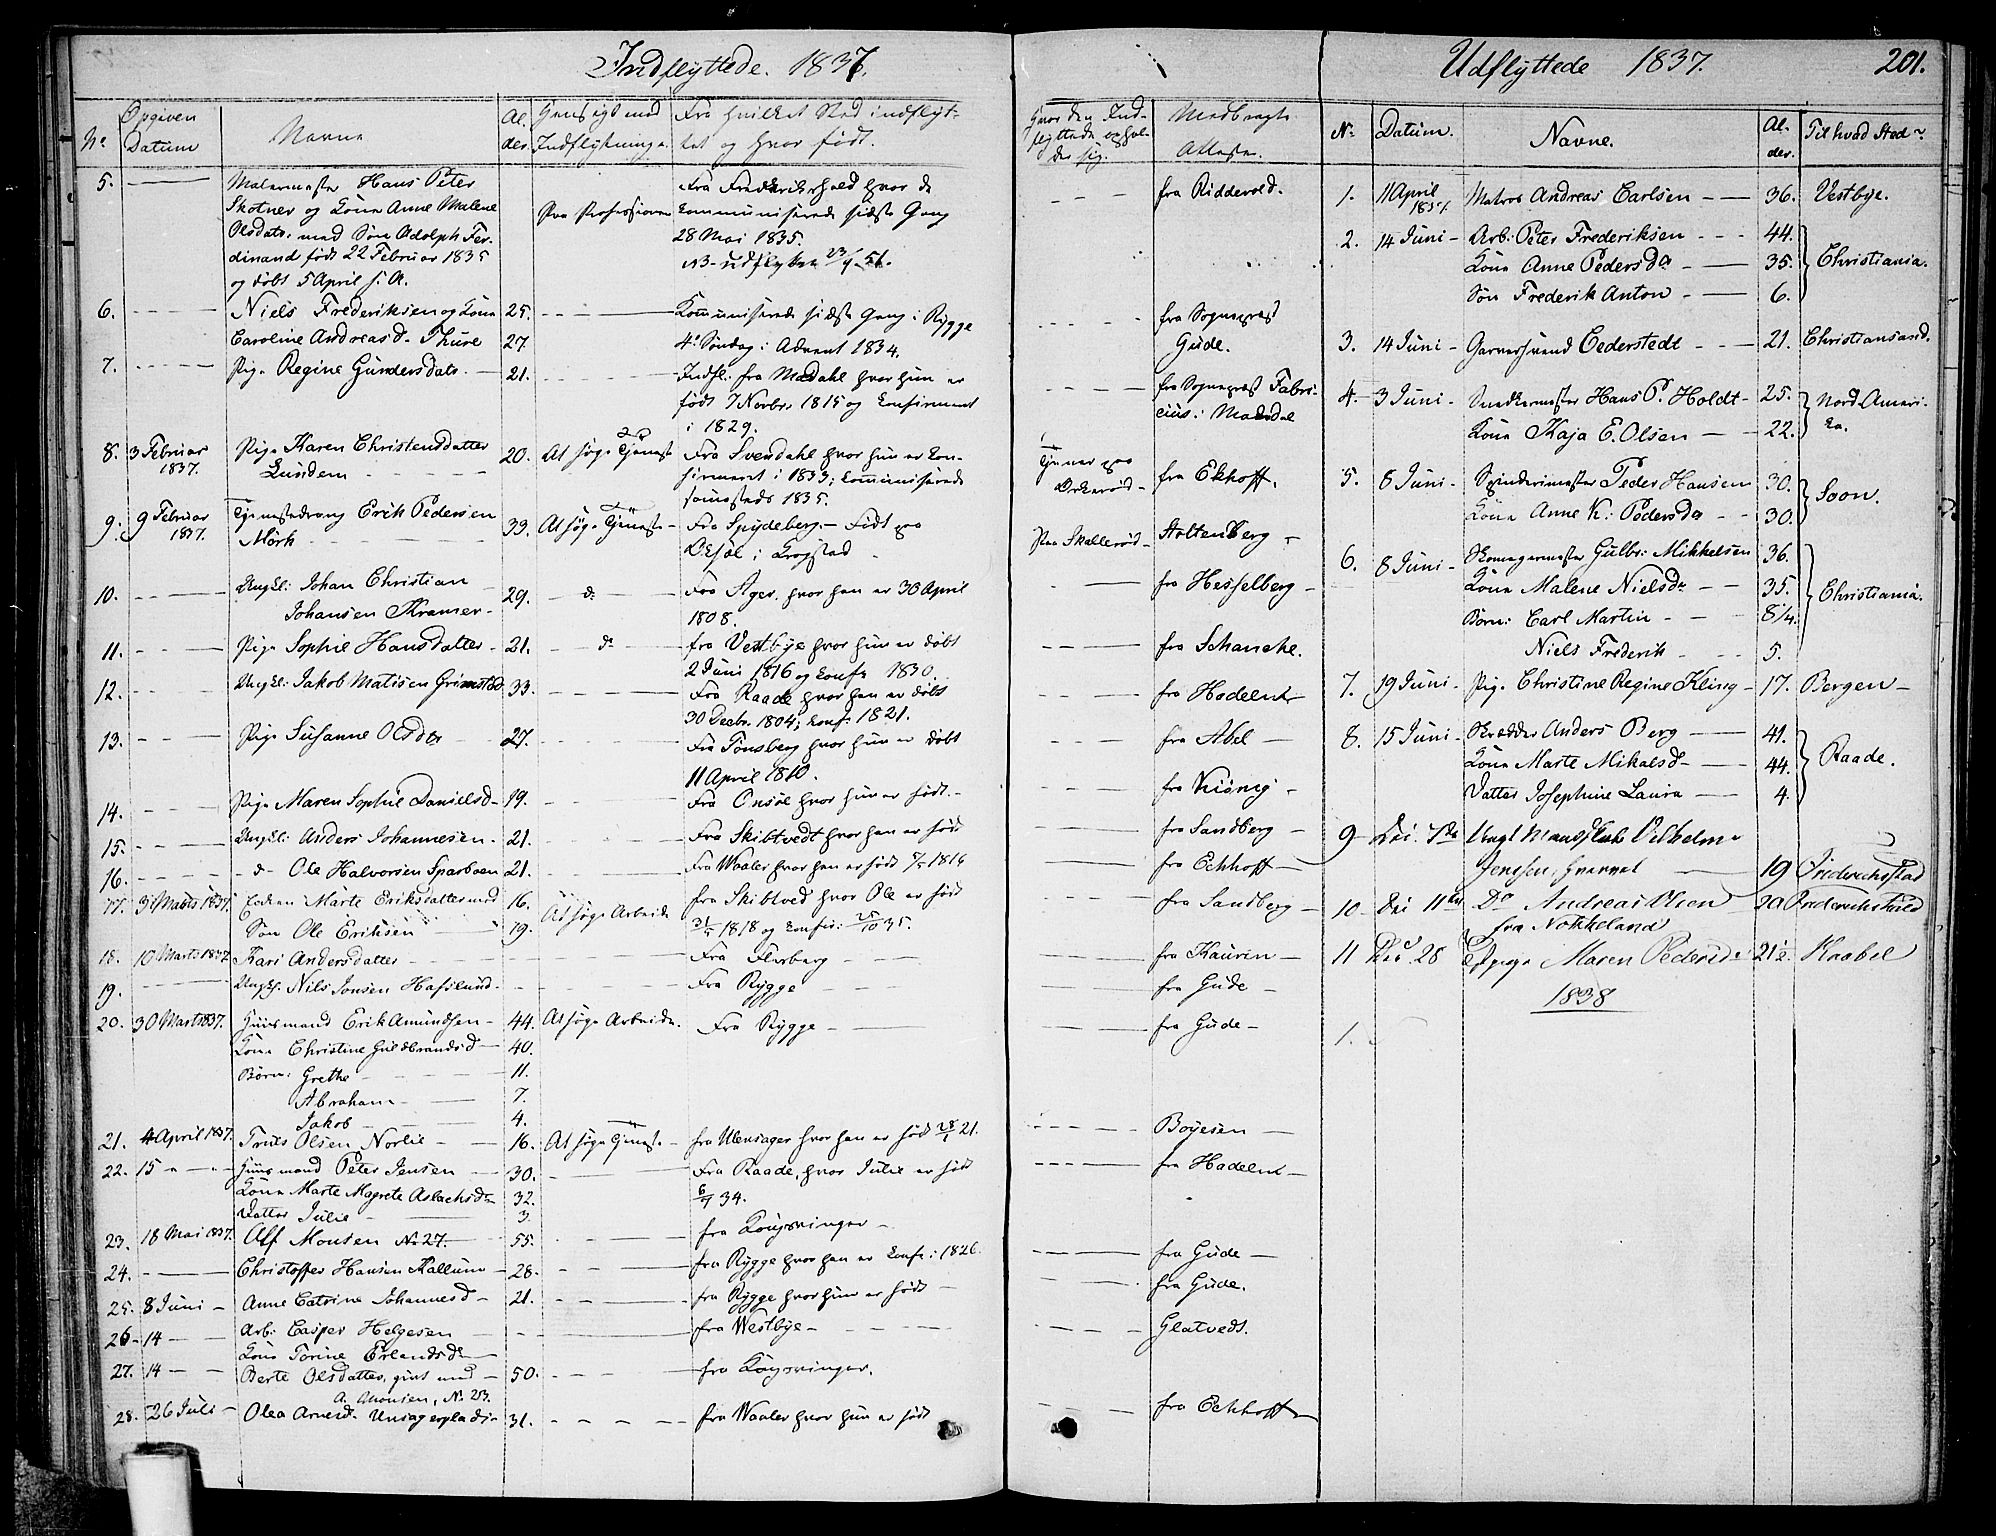 Indflyttede. 1837.
No Opgiven Datum Navne Alder. Hensigt med Indflytningen. Fra hvilket Sted indflyttet og hvor født. Hvor den Indflyttede opholder sig. Medbragt Attester.
5. Malermester Hans Peter Fra Frederikshald hvor de fra Riddervold.
Skotner og Kone Anne Malene Paa Professionen kommuniserede sidste Gang
Olsdatr. med Søn Adolph Fer- 28 Mai 1835.
dinand født 22 Februar 1835 NB- udflyttet 23/9 51.
og døbt 5 April s. A.
6. Niels Frederiksen og Kone 25. Kommuniserede sidste Gang i Rygge fra Sognepræst
Caroline Andreasd. Thure 27. 4de Søndag i Advent 1834. Gude.
7. Pige Regine Gundersdatr. 21. Indfl. fra Mandahl hvor hun er fra Sognepræst Fabri-
født 7 Novbr. 1815 og konfirmeret cius i Mandal
i 1829.
8. 3 Februar 1837. Pige Karen Christensdatter 20. At søge Tjeneste Fra Svendahl hvor hun er kon- Tjener paa fra Ekhoff.
Lundem firmeret i 1833; kommuniserede
samesteds 1835.
9. 9 Februar 1837. Tjenestedreng Erik Pedersen 33. At søge Tjeneste- Fra Spydeberg- Født paa Paa Skallerød- Stoltenberg
Mørk i Krogstad
10. Ungkl: Johan Christian 29. do Fra Ager, hvor han er 30 April fra Hesselberg
Johansen Kramer 1808.
11. Pige Sophie Hansdatter 21. do fra Vestbye hvor hun er døbt fra Schanche.
2 Juni 1816 og konfr 1830.
12. Ungkl: Jakob Matisen Grimstad 33. Fra Raade hvor han er døbt fra Hadeln
30 Decbr. 1804; konf. 1821.
13. Pige Susanne Olsdtr 27. Fra Tønsberg hvor hun er døbt fra Abel
11 April 1810.
14. Pige Maren Sophie Danielsd- 19. Fra Onsøe hvor hun er født. fra Kiønig
15. Ungkl: Anders Johannesen 21. Fra Skibtvedt hvor han er født fra Sandberg
16. -d- Ole Halvorsen Sparboen 21. Fra Waaler hvor han er født 1816 fra Eckhoff
17. 31 Marts 1837. Enken Marte Eriksdatter med 16. At søge Arbeide fra Skibtved hvor Ole er født fra Sandberg
Søn Ole Eriksen 19. 1818 og konfir: 25/10 35.
18. 10 Marts 1837 Kari Andersdatter Fra Flesberg fra Kaurin
19. Ungk. Nils Jonsen Hafslund Fra Rygge fra Gude
20. 30 Marts 1837. Huusmand Erik Amundsen 44. At søge Arbeide. Fra Rygge fra Gude
Kone Christine Guldbrandsd 40.
Børn: Grethe 11.
Abraham 7.
Jakob 4.
21. 4 April 1837. Truls Olsen Norlie 16. At søge Tjeneste fra Ullensager hvor han er født 28/1 21. Boyesen
22. 15 Huusmand Peter Jensen 30. Fra Raade, hvor Julie er født fra Hadeln
Kone Marte Magrete Aslachsdr 32. 6/7 34.
Datter Julie 3.
23. 18 Mai 1837. Alf Monsen No 27. 55. fra Kongsvinger
24. Christoffer Hansen Kallum 28. fra Rygge hvor han er konfr: 1826. fra Gude
25. 8 Juni Anne Catrine Johannesd 21. fra Rygge hvor hun er født fra Gude.
26 14 Arb: Casper Helgesen fra Westbye Glatvedt.
Kone Torine Erlandsdr
27. 14 Berte Olsdatter, gift med 50. fra Kongsvinger.
A. Monsen, No 23.
28. 26 Juli Olea Arnesd. 31. fra Waaler hvor hun er født fra Eckhoff
Udflyttede 1837. 201.
No Datum. Navne. Alder. Til hvad Sted
1. 11 April 1837. Matros Andreas Carlsen 36. Vestbye.
2. 14 Juni Arb: Peter Frederiksen 44.
Kone Anne Pedersdr 35. Christiania.
Søn Frederik Anton 6.
3. 14 Juni Garversvend Cederstedt 21. Christiansand.
4. 3 Juni Snedkermester Hans P. Holdt 25. Nord Ameri-
Kone Kaja E. Olsen 22. ka.
5. 8 Juni Spinderimester Peder Hansen 30. Soon.
Kone Anne K: Pedersdr 30.
6. 8 Juni Skomagermester Gulbr: Mikkelsen 36.
Kone Malene Nielsdr 35. Christiania.
Børn: Carl Martin 8 1/4.
Niels Frederik 5.
7. 19 Juni Pige Christine Regine Kling 17. Bergen
8. 15 Juni Skrædder Anders Berg 41.
Kone Marte Mikalsd 44. Raade.
Datter Josephine Laura 4.
9 Dec. 7de Ungt Mandskab Vilhelm
Jenssen, 19 Friderichstad
10 Dec 11te Do Andreas Olsen 20 Friderichshald
fra Nokkeland
11 Dec. 28 Pige Maren Pedersdr 21½ Kraabel
1838
1.